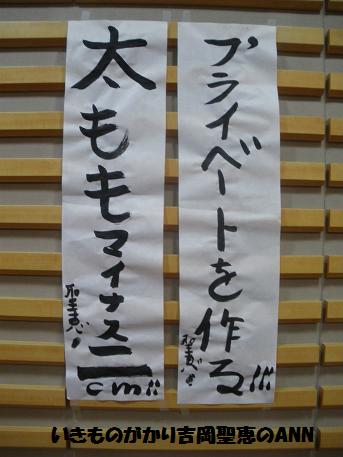 プライベートを作る!!!
聖恵
太ももマイナス二cm!!
聖恵
いきものがかり吉岡聖恵のANN